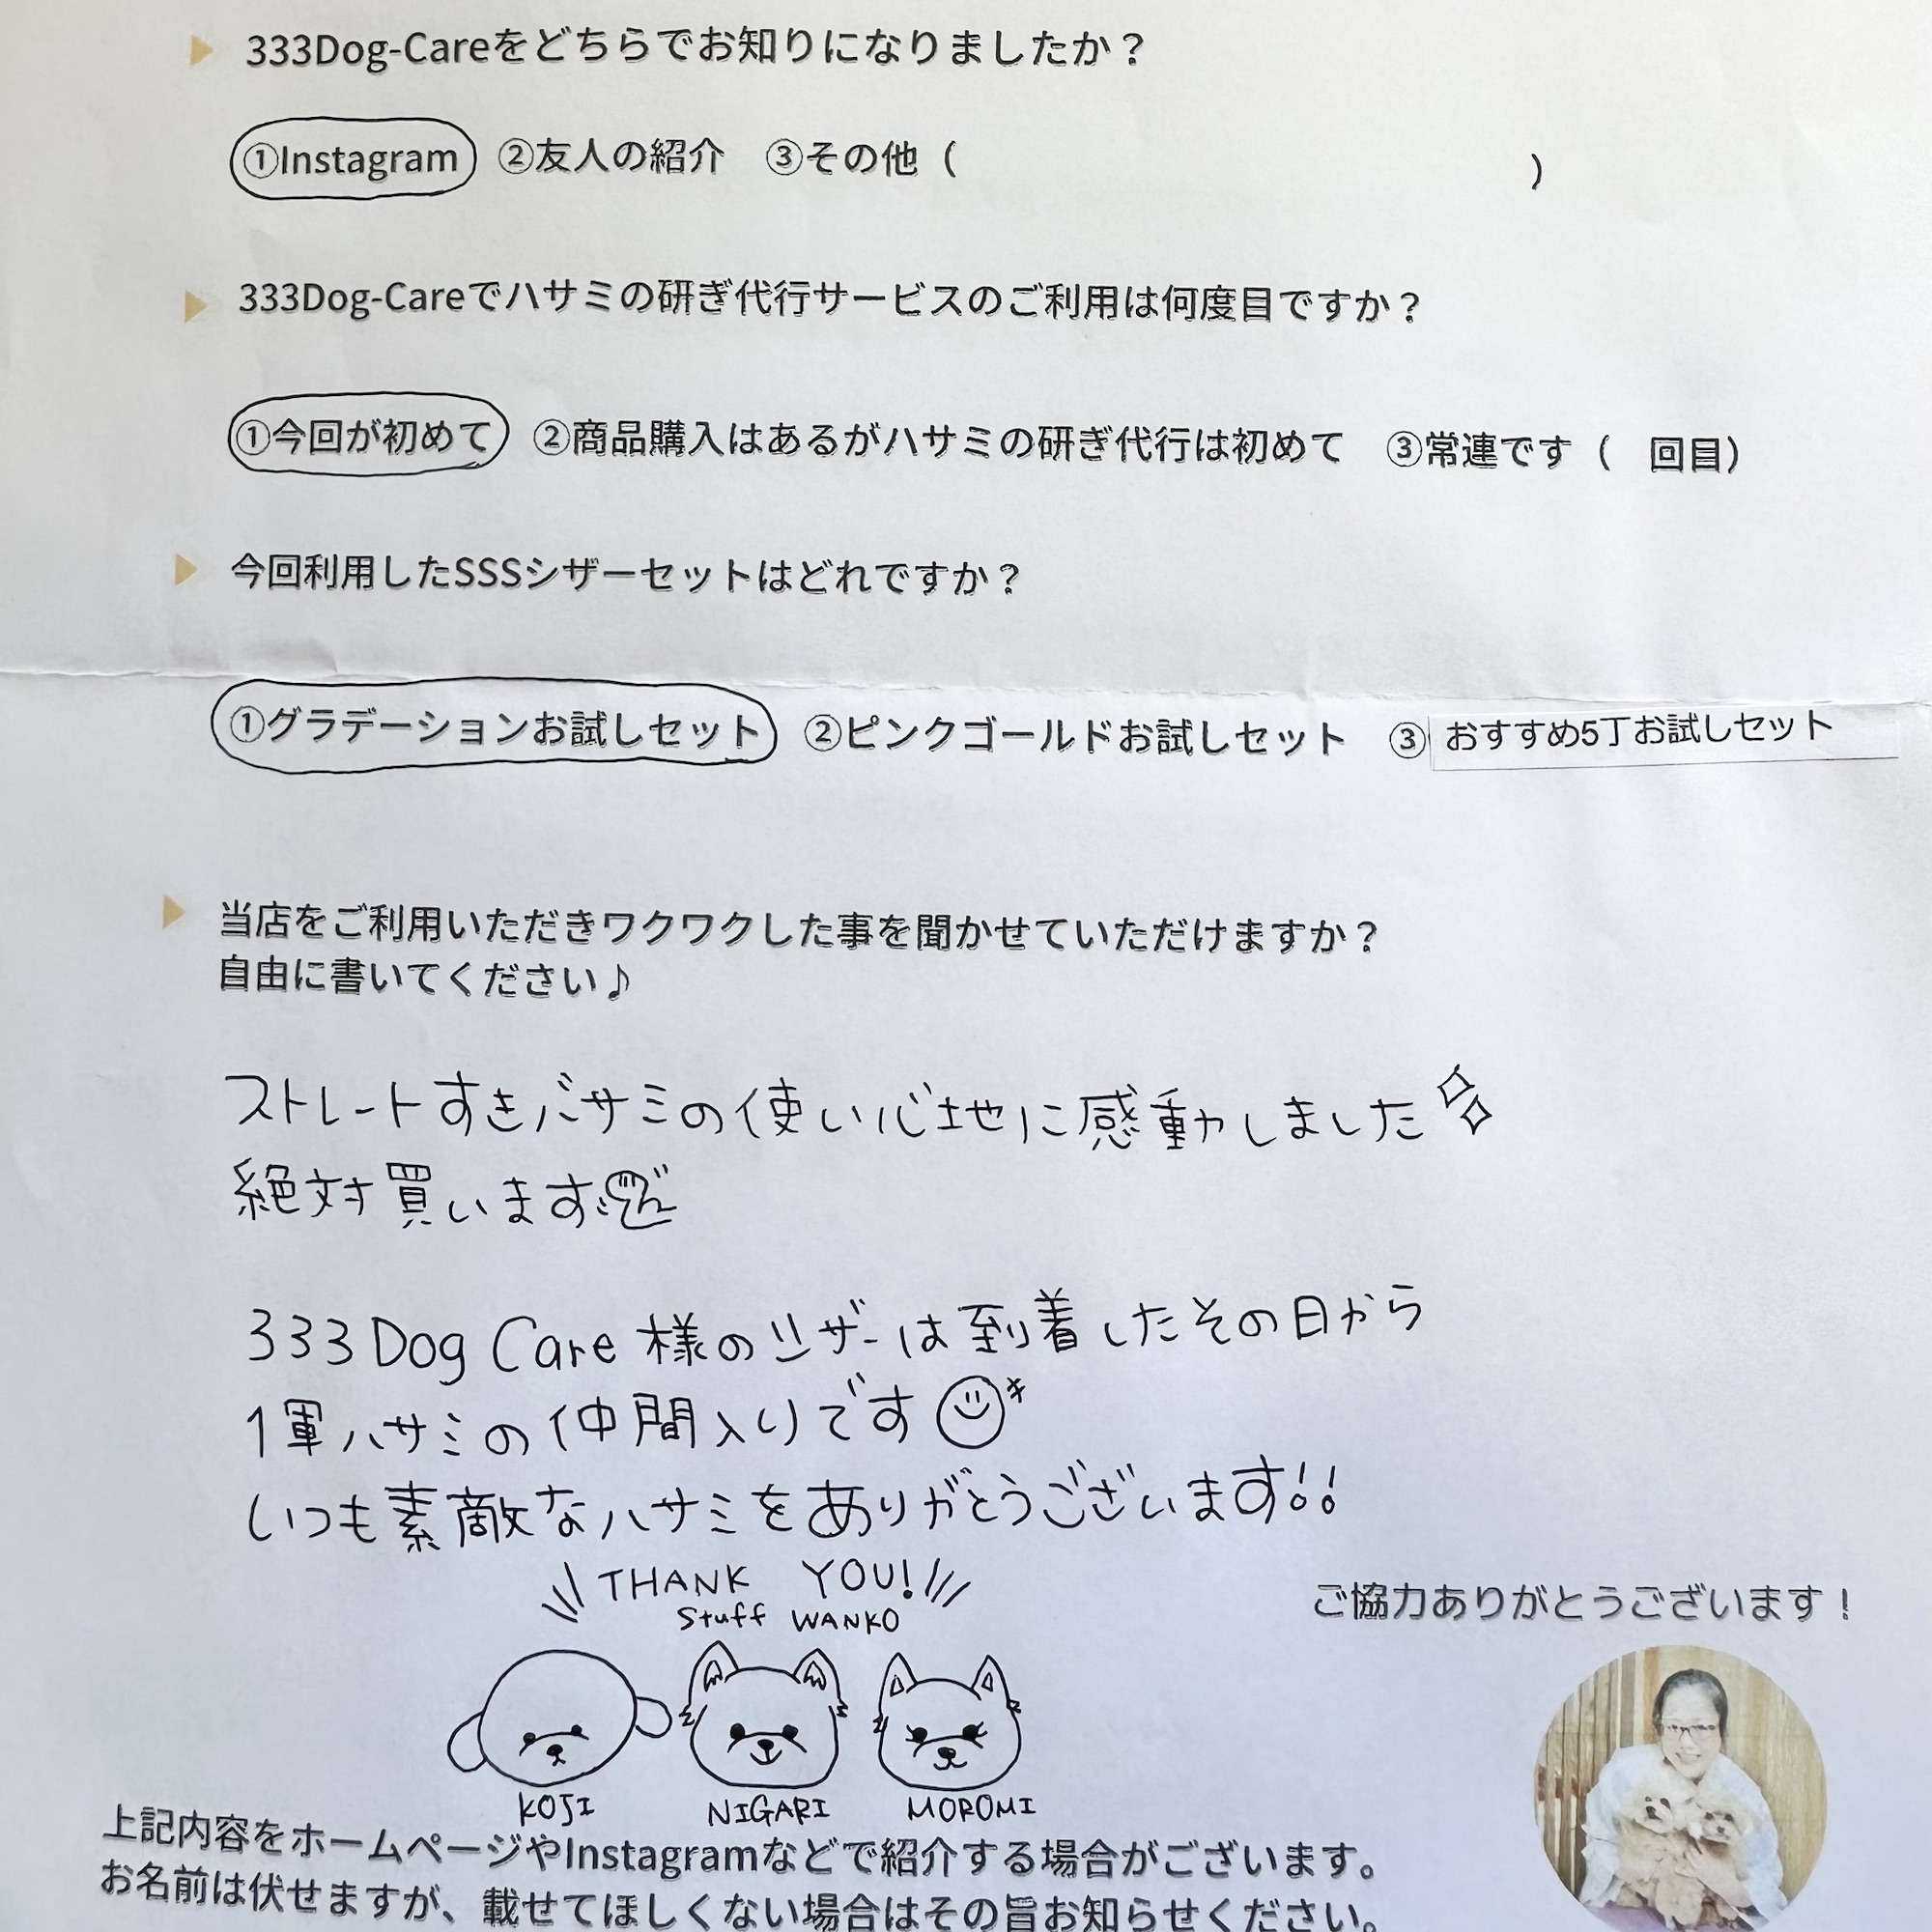 333Dog-Careをどちらでお知りになりましたか？
①Instagram ②友人の紹介 ③その他（ ）
333Dog-Careでハサミの研ぎ代行サービスのご利用は何度目ですか？
①今回が初めて ②商品購入はあるがハサミの研ぎ代行は初めて ③常連です（ 回目）
今回利用したSSSシザーセットはどれですか？
①グラデーションお試しセット ②ピンクゴールドお試しセット ③おすすめ5丁お試しセット
当店をご利用いただきワクワクした事を聞かせていただけますか？
自由に書いてください♪
ストレートすきバサミの使い心地に感動しました
絶対買います
333 Dog Care 様のシザーは到着したその日から
1軍ハサミの仲間入りです
いつも素敵なハサミをありがとうございます!!
THANK YOU!
Stuff WANKO
ご協力ありがとうございます！
KOJI NIGARI MOROMI
上記内容をホームページやInstagramなどで紹介する場合がございます。
お名前は伏せますが、載せてほしくない場合はその旨お知らせください。